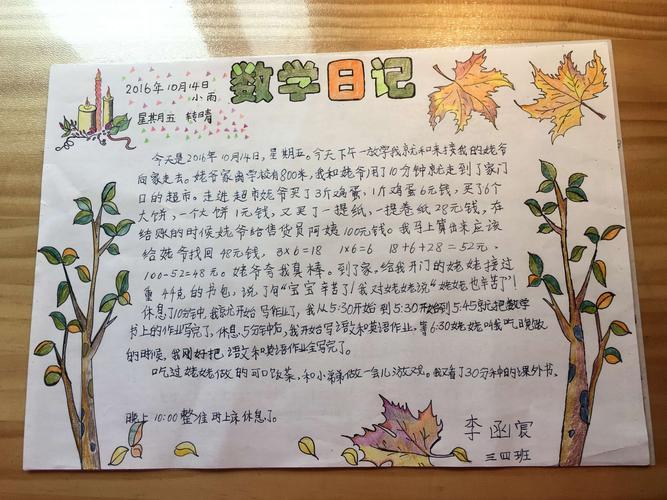 数学日记
2016年10月14日
小雨
星期五 转晴
今天是2016年10月14日，星期五。今天下午一放学我就和来接我的姥爷
向家走去。姥爷家离学校有800米，我和姥爷用10分钟就走到了家门
口的超市。走进超市姥爷买了3斤鸡蛋，1斤鸡蛋6元钱，买了6个
大饼，一个大饼1元钱，又买了一提纸，一提卷纸28元钱，在
结账的时候姥爷给售货员阿姨100元钱。我马上算出来应该
给姥爷找回48元钱， 3×6=18 1×6=6 18+6+28=52元，
100-52=48元。姥爷夸我真棒。到了家，给我开门的姥姥接过
重4千克的书包，说了句“宝宝辛苦了！我对姥姥说“姥姥也辛苦了”！
休息了10分钟，我就开始写作业了，我从5:30开始到5:30开始到5:45就把数学
书上的作业写完了，休息5分钟后，我开始写语文和英语作业，等6:30姥姥叫我吃晚饭
的时候，我刚好把语文和英语作业全写完了。
吃过姥姥做的可口饭菜，和小弟弟做一会儿游戏。我又看了30分钟的课外书。
晚上10:00整准时上床休息了。
李函
三四班